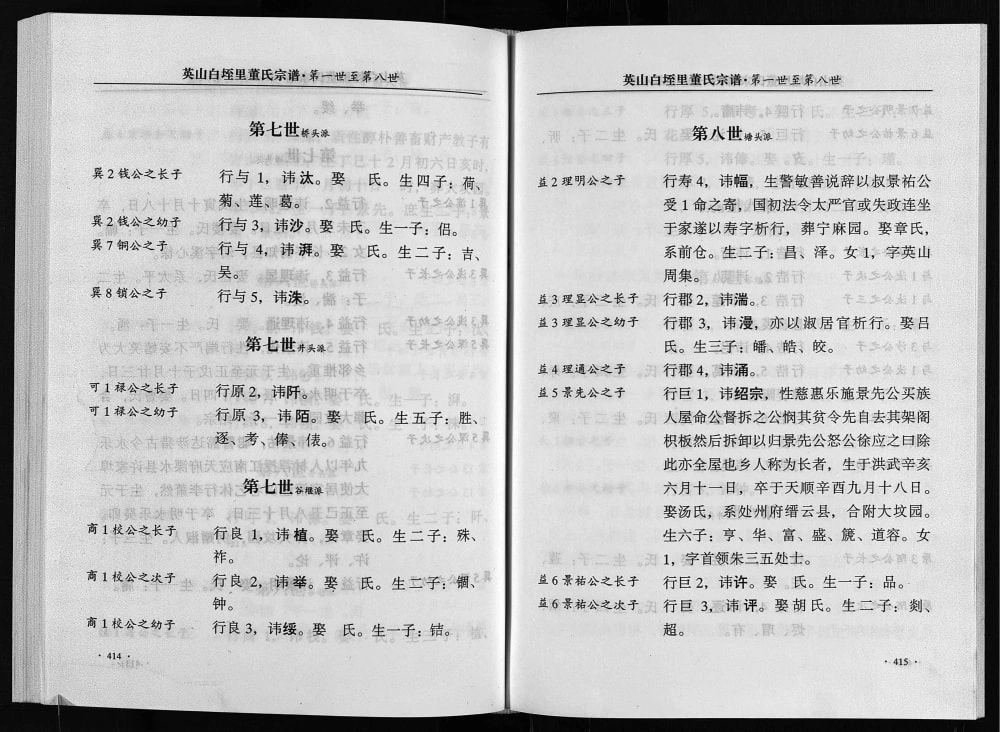 英山白垤里董氏宗谱·第一世至第八世
第七世桥头派
巽2钱公之长子 行与1，讳汰。娶 氏。生四子；荷、
菊、莲、葛。
巽2钱公之幼子 行与3，讳沙。娶 氏。生一子；侣。
巽7铜公之子 行与4，讳湃。娶 氏。生二子；吉、
吴。
巽8锁公之子 行与5，讳洙。
第七世井头派
可1禄公之长子 行原2，讳阡。
可1禄公之幼子 行原3，讳陌。娶 氏。生五子；胜、
逐、考、俸、俵。
第七世谷堰派
商1校公之长子 行良1，讳植。娶 氏。生二子；殊、
祚。
商1校公之次子 行良2，讳举。娶 氏。生二子；锢、
钟。
商1校公之幼子 行良3，讳绥。娶 氏。生一子；铦。
·414·
英山白垤里董氏宗谱·第一世至第八世
第八世塘头派
益2理明公之子 行寿4，讳幅，生警敏善说辞以叔景祐公
受1命之寄，国初法令太严官或失政连坐
于家遂以寿字析行，葬宁麻园。娶章氏，
系前仓。生二子；昌、泽。女1，字英山
周集。
益3理显公之长子 行郡2，讳湍。
益3理显公之幼子 行郡3，讳漫，亦以淑居官析行。娶吕
氏。生三子；皤、皓、皎。
益4理通公之子 行郡4，讳涌。
益5景先公之子 行巨1，讳绍宗，性慈惠乐施景先公买族
人屋命公督拆之公悯其贫令先自去其架阁
枳板然后拆卸以归景先公怒公徐应之曰除
此亦全屋也乡人称为长者，生于洪武辛亥
六月十一日，卒于天顺辛酉九月十八日。
娶汤氏，系处州府缙云县，合附大坟园。
生六子；亨、华、富、盛、簏、道容。女
1，字首领朱三五处士。
益6景祐公之长子 行巨2，讳许。娶 氏。生一子；品。
益6景祐公之次子 行巨3，讳评。娶胡氏。生二子；剡、
超。
·415·